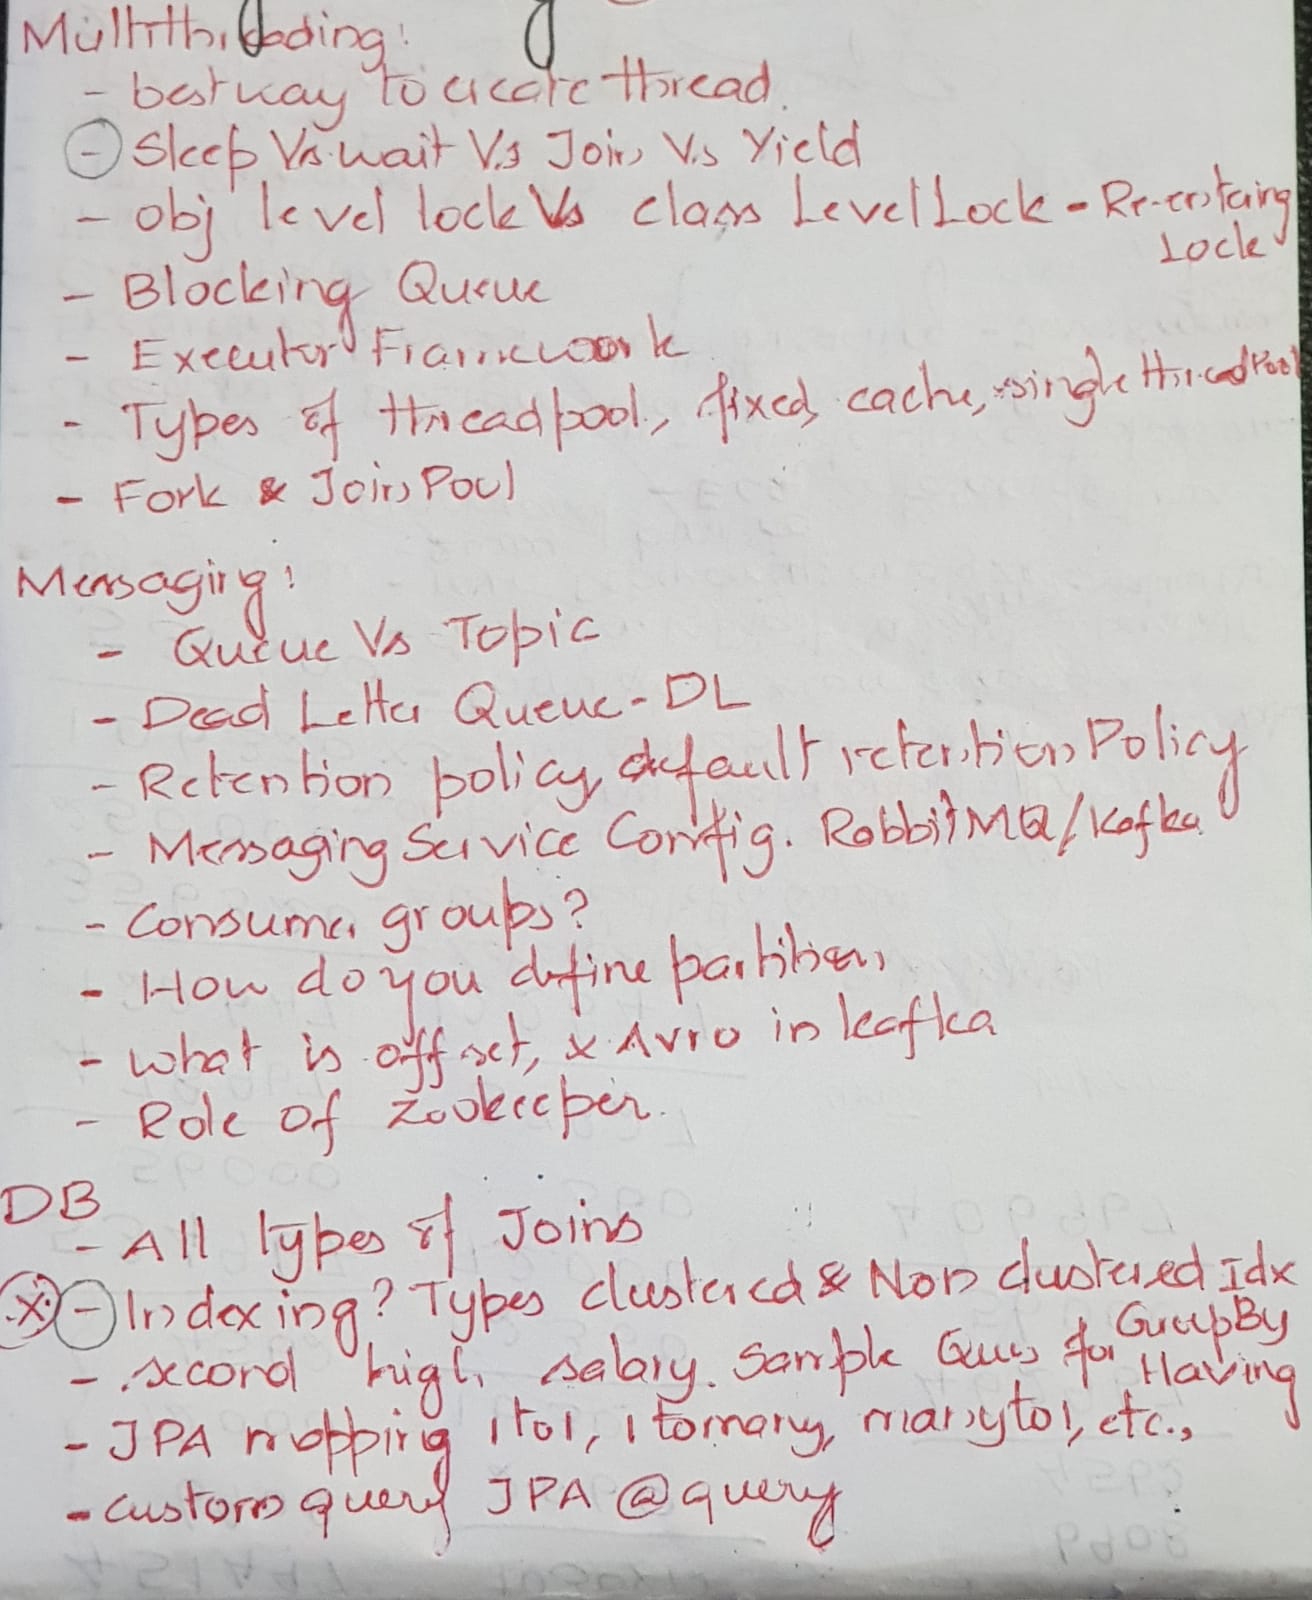 Multithreading:
- best way to create thread.
- Sleep Vs. wait Vs Join Vs Yield
- obj level lock Vs class Level Lock - Re-entaring
Lock
- Blocking Queue
- Executor Framework
- Types of threadpool, fixed, cache, single thread Pool
- Fork & Join Pool
Messaging:
- Queue Vs Topic
- Dead Letter Queue - DL
- Retention policy, default retention Policy
- Messaging Service Config. RabbitMQ/Kafka
- Consumer groups?
- How do you define partition,
- what is offset, x Avro in kafka
- Role of zookeeper.
DB
- All types of Joins
x - Indexing? Types clustered & Non clustered Idx
- second high salary. Sample Ques for GroupBy
Having
- JPA mapping 1to1, 1tomany, manyto1, etc.,
- custom query JPA @query